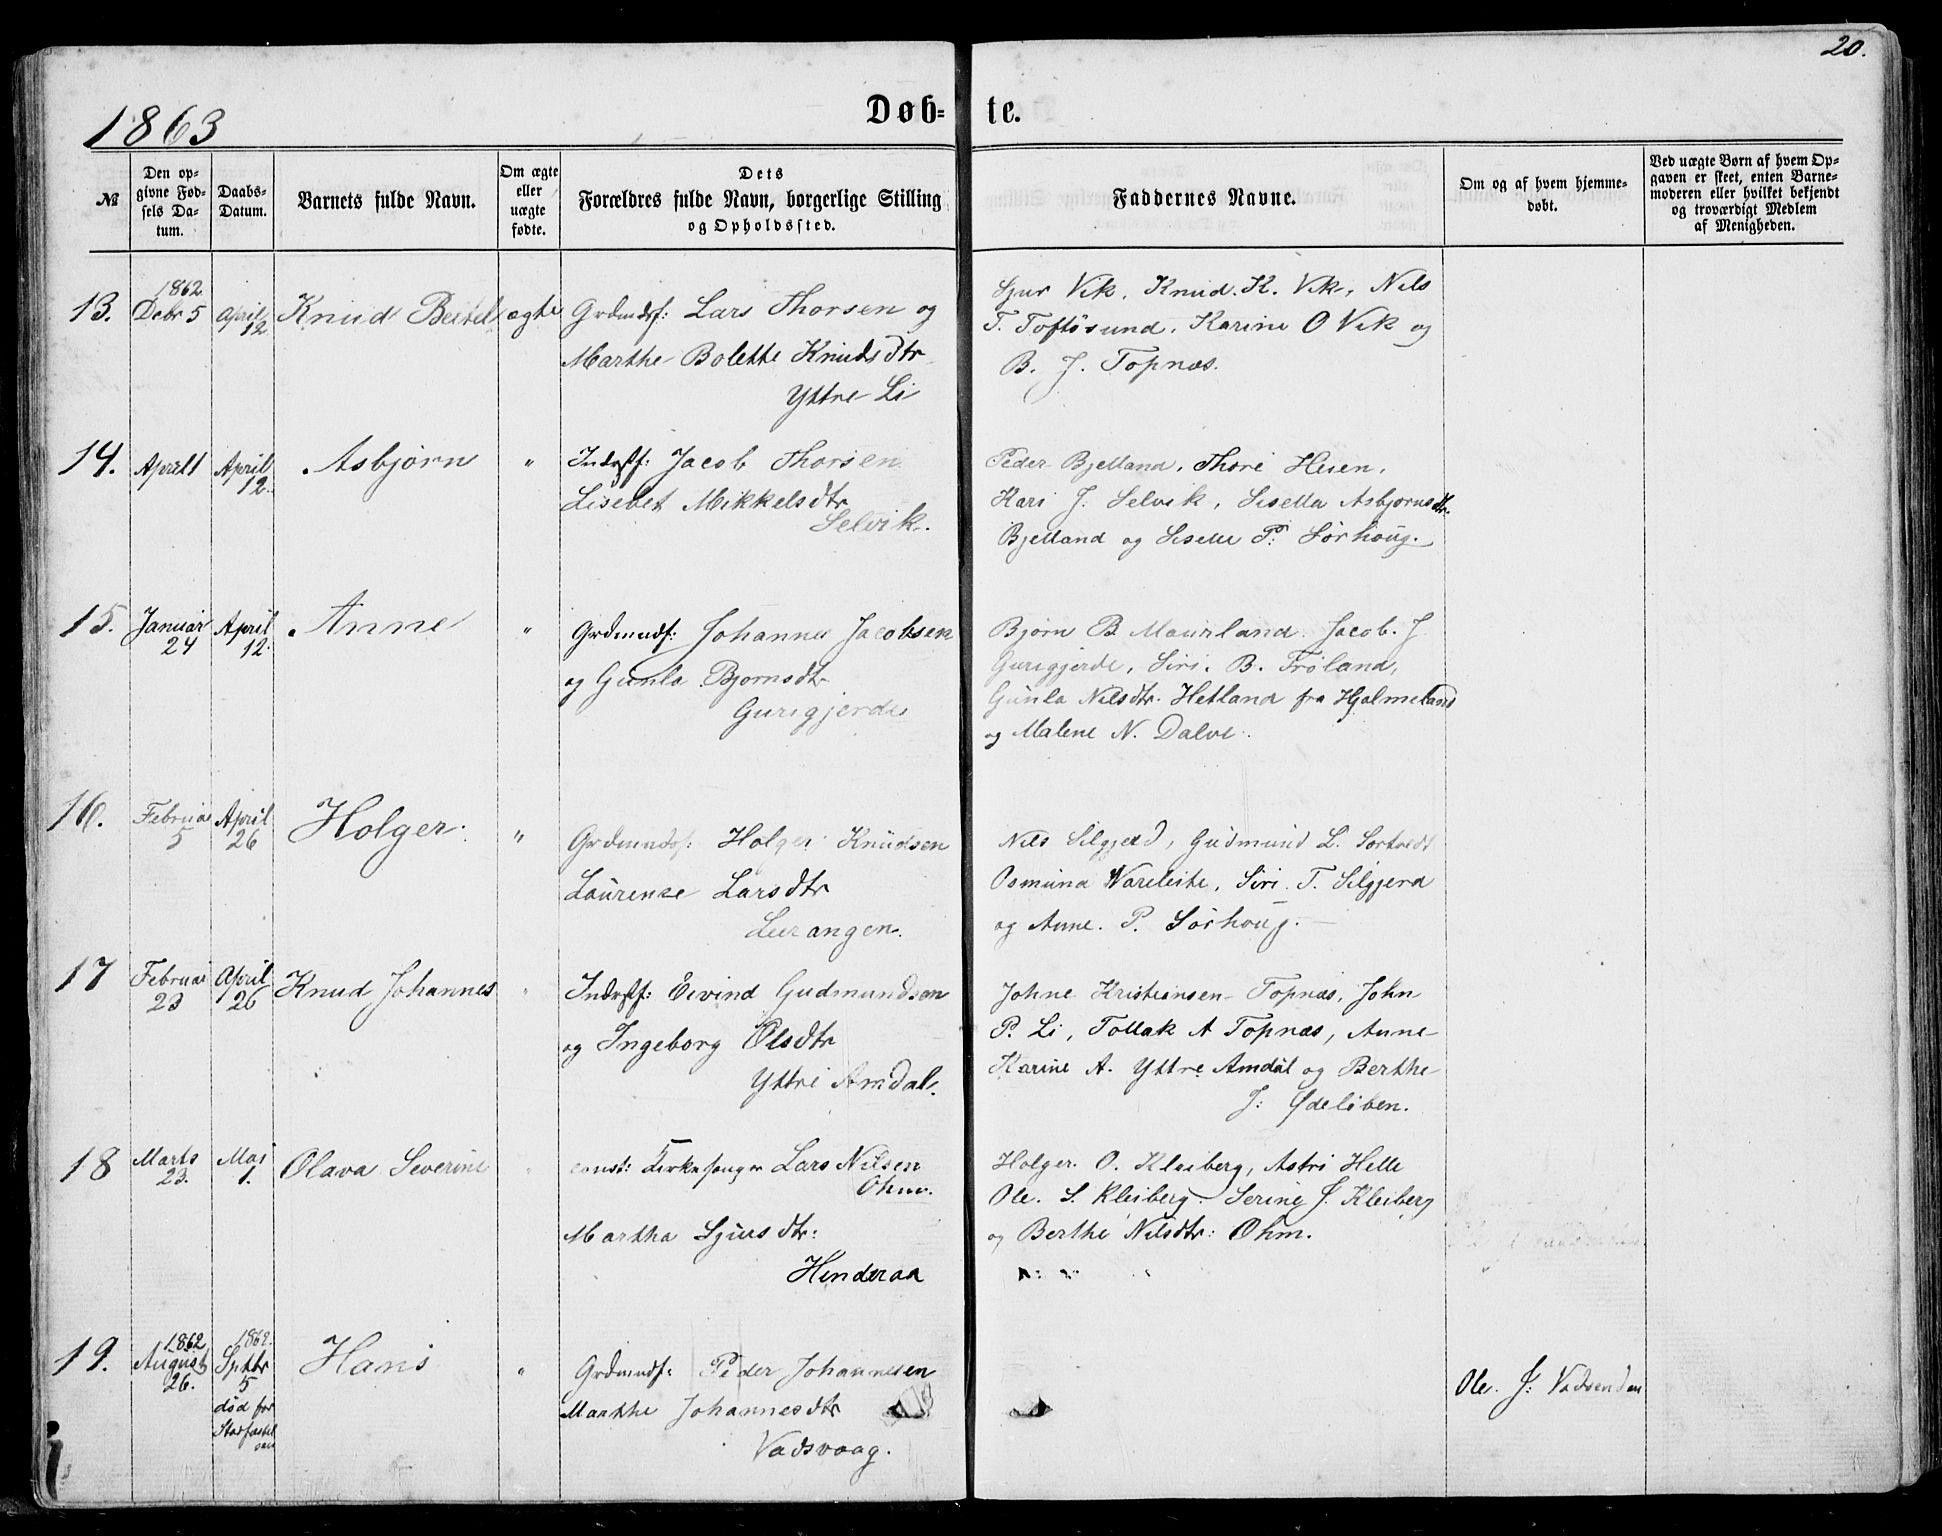 20.
1863
Døb- te.
№
Den op-
givne Fød-
sels Da-
tum.
Daabs-
Datum.
Barnets fulde Navn.
Om ægte
eller
uægte
fødte.
Dets
Forældres fulde Navn, borgerlige Stilling
og Opholdssted.
Faddernes Navne.
Om og af hvem hjemme-
døbt.
Ved uægte Børn af hvem Op-
gaven er skeet, enten Barne-
moderen eller hvilket bekjendt
og troværdigt Medlem
af Menigheden.
13.
1862
Debr 5
April
12
Knud Beitel
ægte
Grdmdsf: Lars Thorsen og
Marthe Bolette Knudsdtr
Yttre Li
Sjur Vik, Knud. K. Vik, Nils
T. Toftøsund, Karine O Vik og
B. J. Topnæs.
14.
April 1
April
12.
Asbjørn
"
Indrstf: Jacob Thorsen
Lisebet Mikkelsdtr
Selvik.
Peder Bjelland, Thore Heien,
Kari J. Selvik, Sisella Asbjornsdtr.
Bjelland og Siselle P: Sørhoug.
15.
Januar
24
April
12.
Anne
"
Grdmndsf: Johannes Jacobsen
og Gunla Bjornsdtr
Gurigjerde
Bjørn B Maurland. Jacob. J
Gurigjerde, Siri. B. Frøland,
Gunla Nilsdtr. Hetland fra Hjelmeland
og Malene N. Dalve.
16.
Februar
5
April
26
Holger.
"
Grdmndsf: Holger Knudsen
Laurense Larsdtr
Leirangen.
Nils Silgjerd, Gudmund L. Sortvedt
Osmund Wareleite, Siri. T. Silgjerd
og Anne. P. Sørhoug.
17
Februar
23
April
26
Knud Johannes
"
Indrstf: Eivind Gudmundsen
og Ingeborg Olsdtr
Yttre Amdal.
Johne Kristiansen Topnæs, John
P. Li, Tollak A Topnæs, Anne
Karine A. Yttre Amdal og Berthe
J: Ødeløben.
18
Marts
23.
Mai
1.
Olava Severine
"
const: Kirkesanger Lars Nilsen
Ohm.
Martha Sjursdtr:
Hinderaa
Holger. O. Kleiberg, Astri Helle
Ole. S. Kleiberg. Serine J. Kleiberg
og Berthe Nilsdtr: Ohm.
19.
1862
August
26.
1862.
Sptbr
5
død før
Stadfæstel
sen
Hans
"
Grdmndsf: Peder Johannesen
Marthe Johannesdtr
Vadsvaag.
Ole. J: Vadsenden